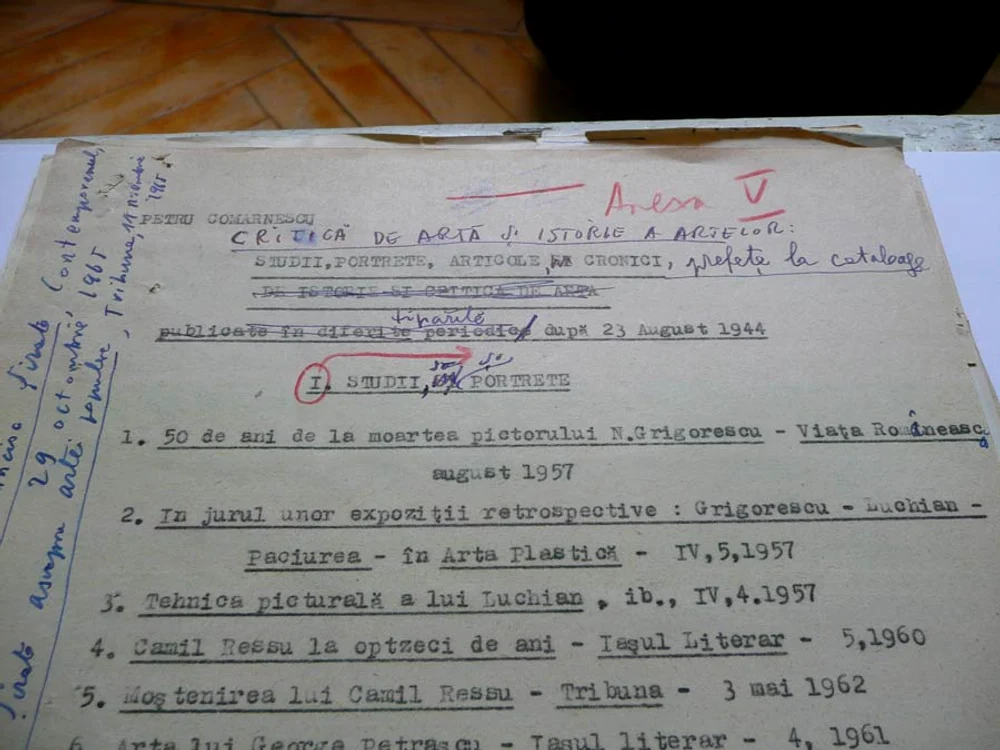 Anexa V
PETRU COMARNESCU
CRITICĂ DE ARTĂ ȘI ISTORIE A ARTELOR:
STUDII, PORTRETE, ARTICOLE, CRONICI, prefețe la cataloage
DE ISTORIE SI CRITICA DE ARTA
tipărite
publicate în diferite periodice după 23 August 1944
I. STUDII, și PORTRETE
1. 50 de ani de la moartea pictorului N.Grigorescu - Viața Românească
august 1957
2. In jurul unor expoziţii retrospective : Grigorescu - Luchian -
Paciurea - în Arta Plastică - IV,5,1957
3. Tehnica picturală a lui Luchian , ib., IV,4.1957
4. Camil Ressu la optzeci de ani - Iaşul Literar - 5,1960
5. Moştenirea lui Camil Ressu - Tribuna - 3 mai 1962
6. Arta lui George Petraşcu - Iasul literar - 4, 1961
asupra artei populare, Tribuna, 11 noiembrie
1965
29 octombrie 1965
Contemporanul,